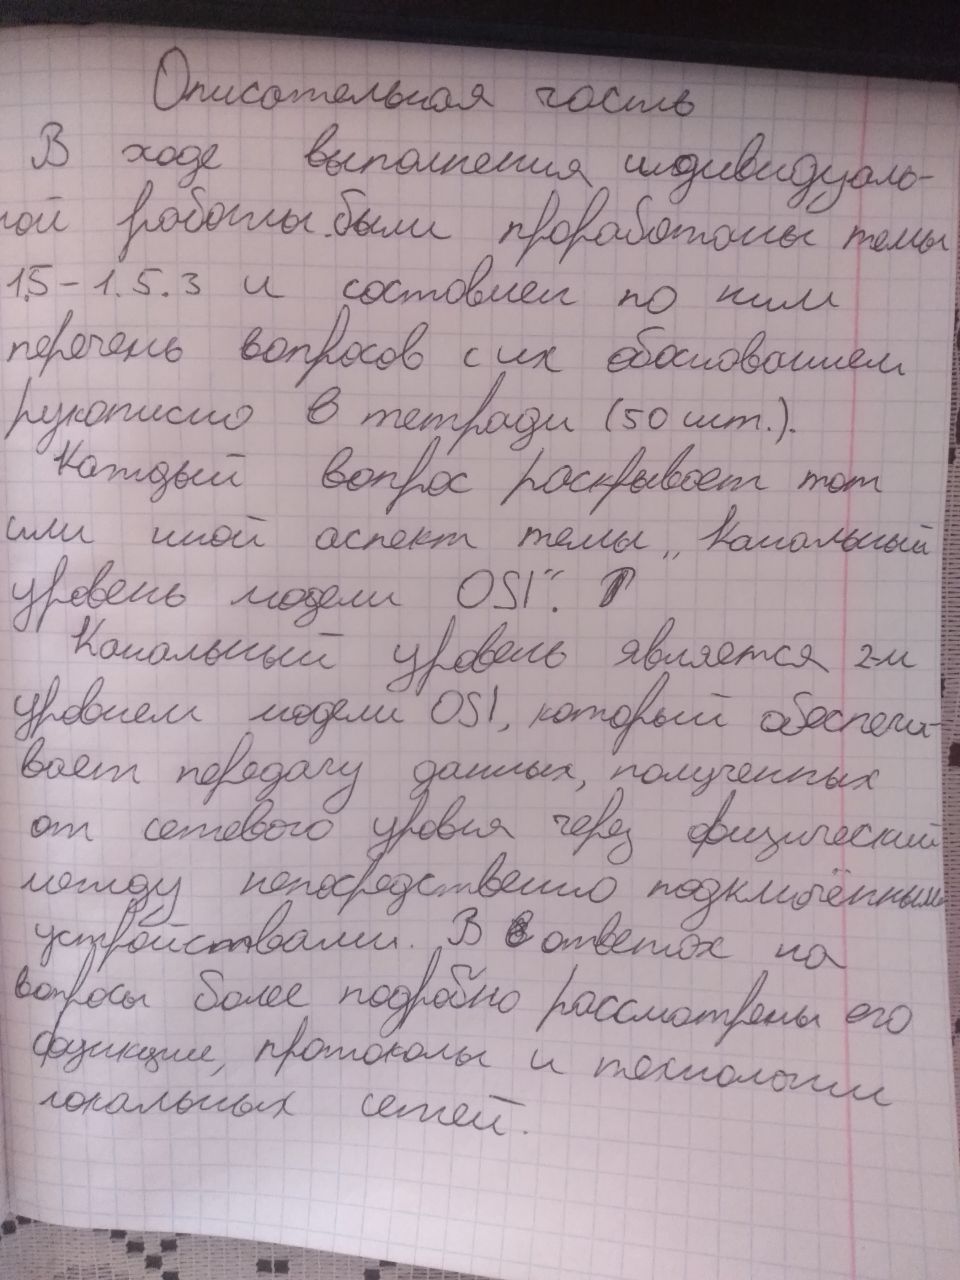 Описательная часть
В ходе выполнения индивидуаль-
ной работы были проработаны темы
1.5-1.5.3 и составлен по ним
перечень вопросов с их обоснованием
рукописно в тетради (50 шт.).
Каждый вопрос раскрывает тот
или иной аспект темы „Канальный
уровень модели OSI“.
Канальный уровень является 2-м
уровнем модели OSI, который обеспечи-
вает передачу данных, полученных
от сетевого уровня через физический
между непосредственно подключёнными
устройствами. В ответах на
вопросы более подробно рассмотрены его
функции, протоколы и технологии
локальных сетей.